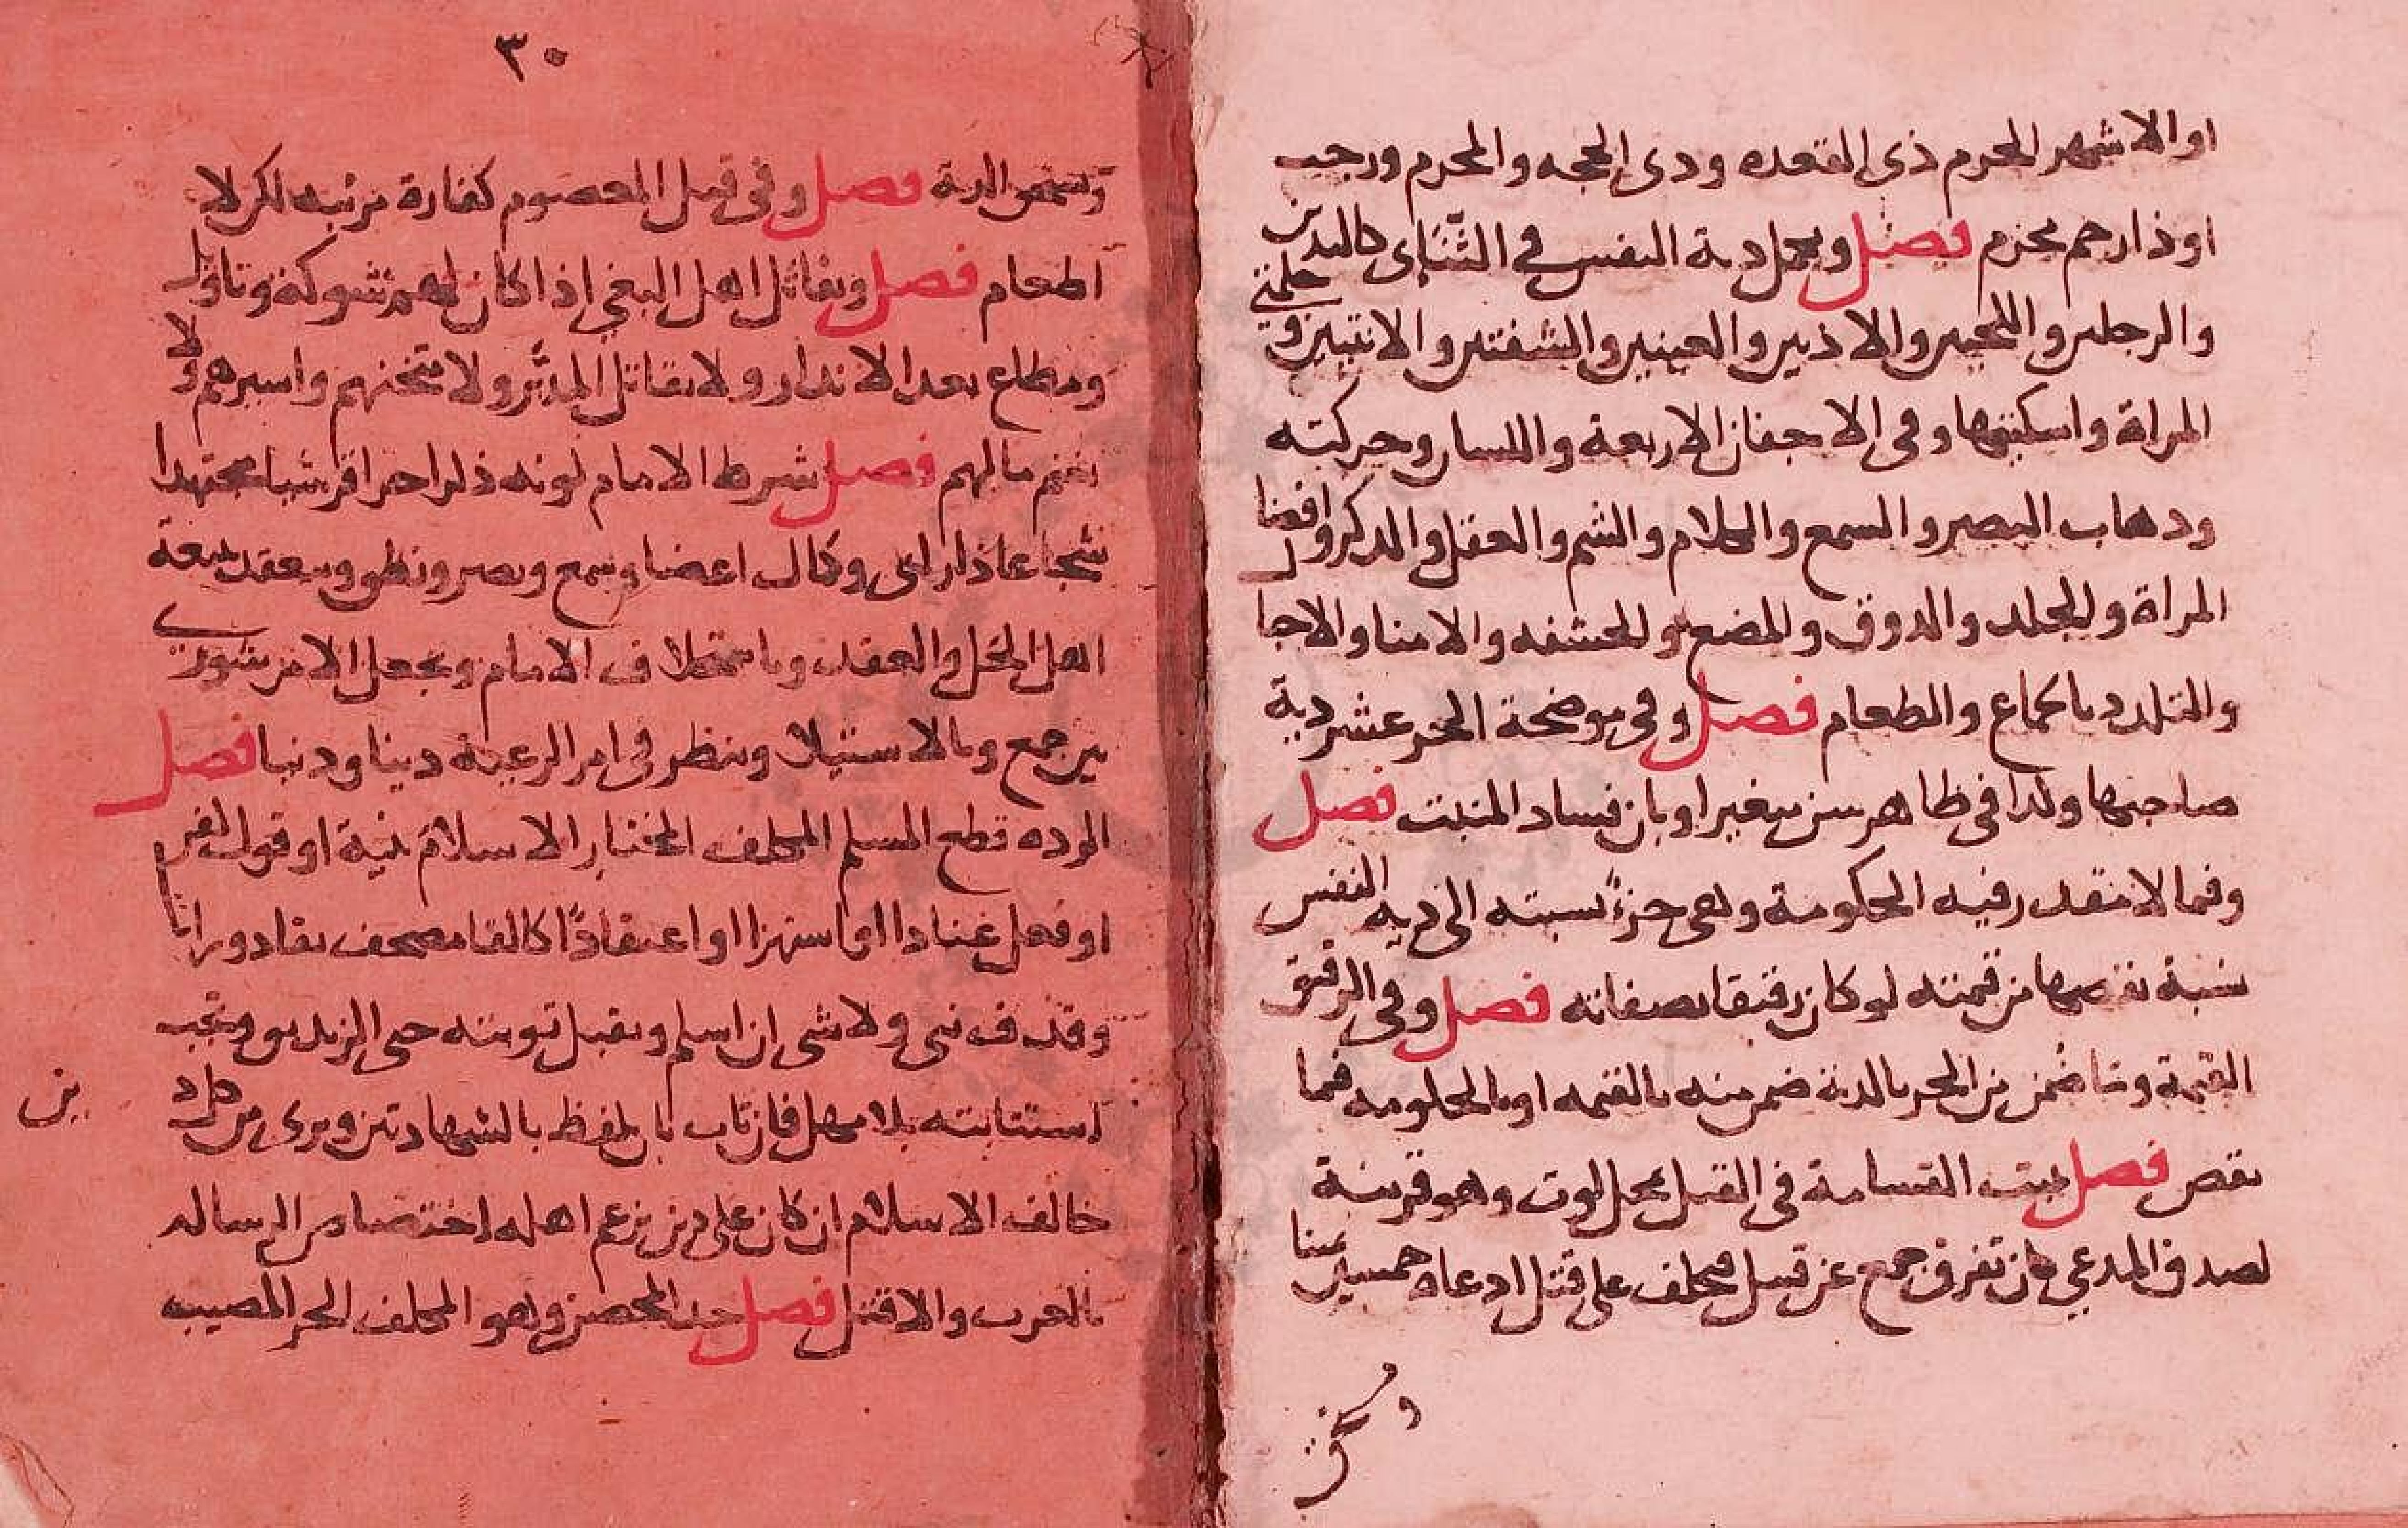 او الاشهر الحرم ذى القعده ودى الحجه والمحرم ورجب
او ذا رحم محرم فصل ويكمل دية النفس في الثنَاى كاليدين
والرجلين واللحيين والاذنين والعينين والشفتين والانثيين و حلمتي
المراة واسكتيها وفى الاجفان الاربعة واللسان وحركته
ودهاب البصر والسمع والكلام والشم والعقل والدكر وافضا
المراة والجلد والدوق والمضغ والحشفه والامنا والاحبا
والتلدد بالجماع والطعام فصل وفى موضحة الحر عشر دية
صاحبها ولذا فى ظاهر سن صغير او بان فساد المنبت فصل
وفما لا مقدر فيه الحكومة وهى جزءٌ نسبته الى دية النفس
نسبة نقصها من قيمته لو كان رقيقا بصفاته فصل وفى الرقيق
القيمة وما ضُمن من الحر بالدية ضمن منه بالقيمه او بالحكومه فما
نقص فصل يثبت القسامة فى القتل بمحل لوث وهو قرينة
لصدق المدعي كان تفرق جمع عن قتيل فيحلف على قتل ادعاه خمسين يمينا
٣٠
وتستحق الدية فصل وفى قتل المعصوم كفارة مرتبه لكن لا
اطعام فصل ويقاتل اهل البغي اذا كان لهم شوكة وتاويل
ومطاع بعد الانذار ولا يقاتل المدبَّر ولا مثخنهم واسيرهم ولا
يغنم مالهم فصل شرط الامام كونه ذكرا حرا قرشيا مجتهدا
شجاعا ذا راى وكمال اعضا وسمع وبصر ونطق وينعقد ببيعة
اهل الحل والعقد وباستخلاف الامام وبجعل الامر شورى
بين جمع وبالاستيلا وينظر فى امر الرعية دينا ودنيا فصل
الرده قطع المسلم المكلف المختار الاسلام بنية او قول كفر
او فعل عنادا او استهزا او اعتقادًا كالقا مصحف بقادورات
وقذف نبى ولا شى ان اسلم ويقبل توبته حتى الزنديق وتجب
استتابته بلا مهل فان تاب بان يلفظ بالشهادتين وبرى من كل دين
خالف الاسلام ان كان على دين يزعم اهله اختصاص الرساله
بالعرب والا قتل فصل حد المحصن وهو المكلف الحر المصيب